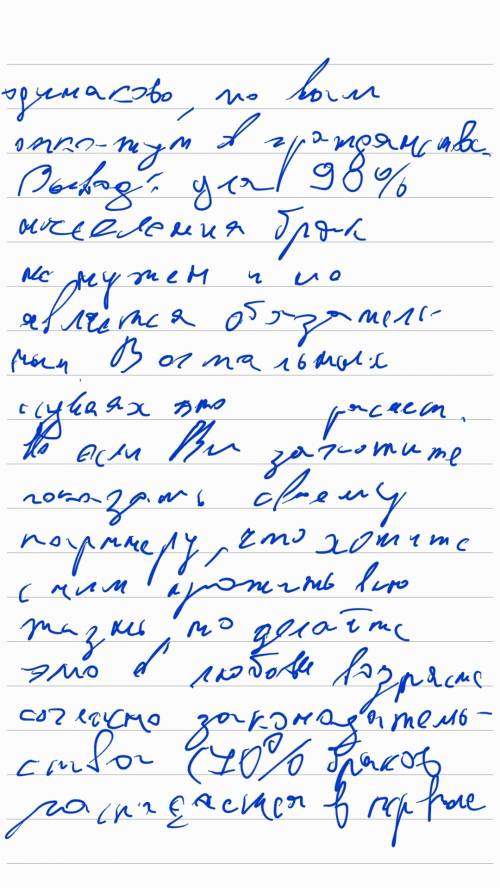 одинаково, но вам
откажут в гражданстве.
Вывод: для 98%
населения брак
не нужен и не
является обязатель-
ным. В остальных
случаях это расчет.
Но если Вы захотите
показать своему
партнеру, что хотите
с ним прожить всю
жизнь, то делайте
это в любом возрасте
согласно законодатель-
ства (70% браков
распадается в первые